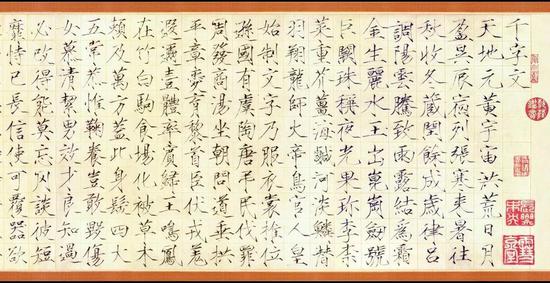 千字文
天地元黃宇宙洪荒日月
盈昃辰宿列張寒來暑往
秋收冬藏閏餘成歲律呂
調陽雲騰致雨露結為霜
金生麗水玉出崑崗劍號
巨闕珠稱夜光果珍李柰
菜重芥薑海鹹河淡鱗潛
羽翔龍師火帝鳥官人皇
始制文字乃服衣裳推位
遜國有虞陶唐弔民伐罪
周發商湯坐朝問道垂拱
平章愛育黎首臣伏戎羌
遐邇壹體率賓歸王鳴鳳
在竹白駒食場化被草木
賴及萬方蓋此身髮四大
五常恭惟鞠養豈敢毀傷
女慕清絜男效才良知過
必改得能莫忘罔談彼短
靡恃己長信使可覆器欲